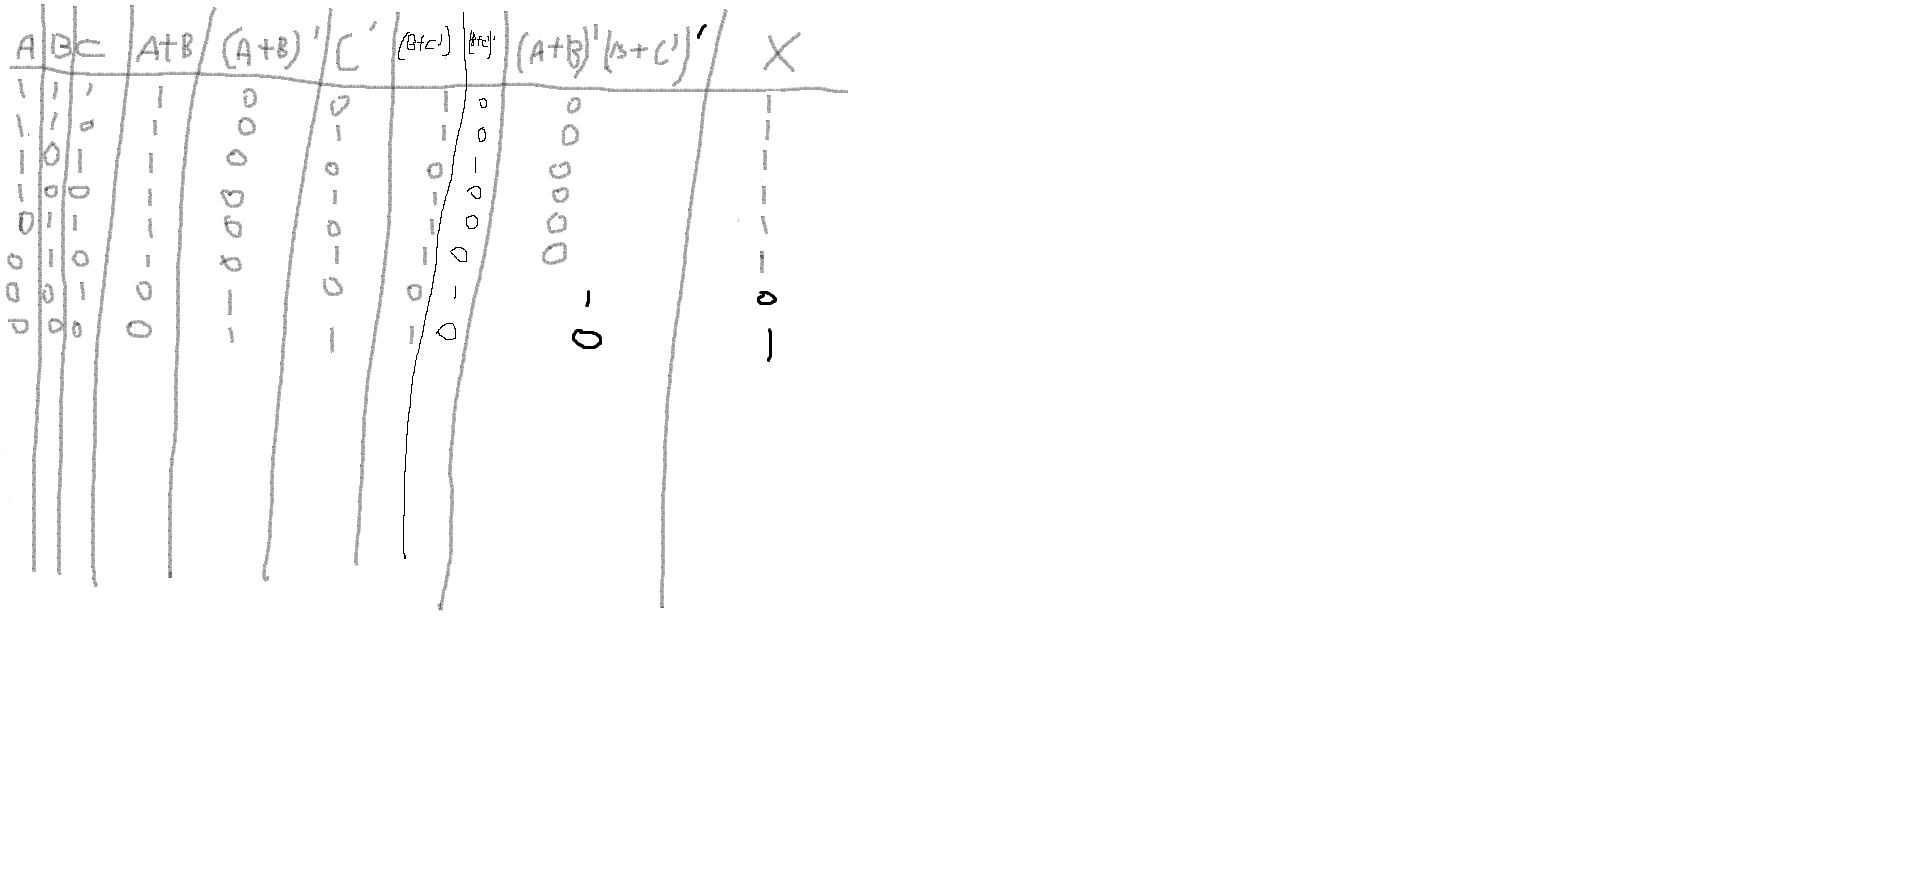 A B C A+B (A+B)' C' (B+C') (B+C')' (A+B)'(B+C')' X
1 1 1 1 0 0 1 0 0 1
1 1 0 1 0 1 1 0 0 1
1 0 1 1 0 0 0 1 0 1
1 0 0 1 0 1 1 0 0 1
0 1 1 1 0 0 1 0 0 1
0 1 0 1 0 1 1 0 0 1
0 0 1 0 1 0 0 1 1 0
0 0 0 0 1 1 1 0 0 1